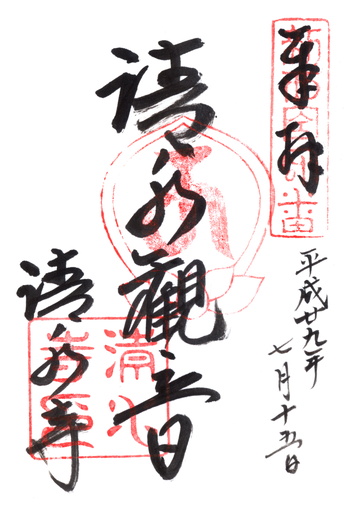 奉拝
平成廿九年
七月十五日
清水観音
清水寺